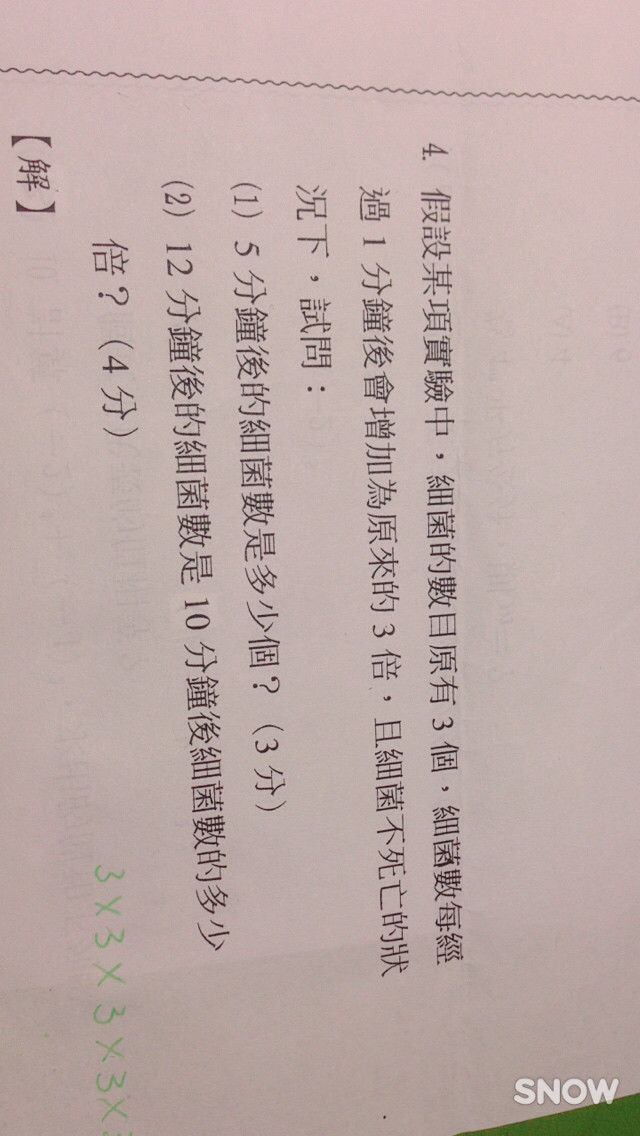 4. 假設某項實驗中，細菌的數目原有 3 個，細菌數每經
過 1 分鐘後會增加為原來的 3 倍，且細菌不死亡的狀
況下，試問：
(1) 5 分鐘後的細菌數是多少個？（3 分）
(2) 12 分鐘後的細菌數是 10 分鐘後細菌數的多少
倍？（4 分）
3×3×3×3×
【解】
SNOW